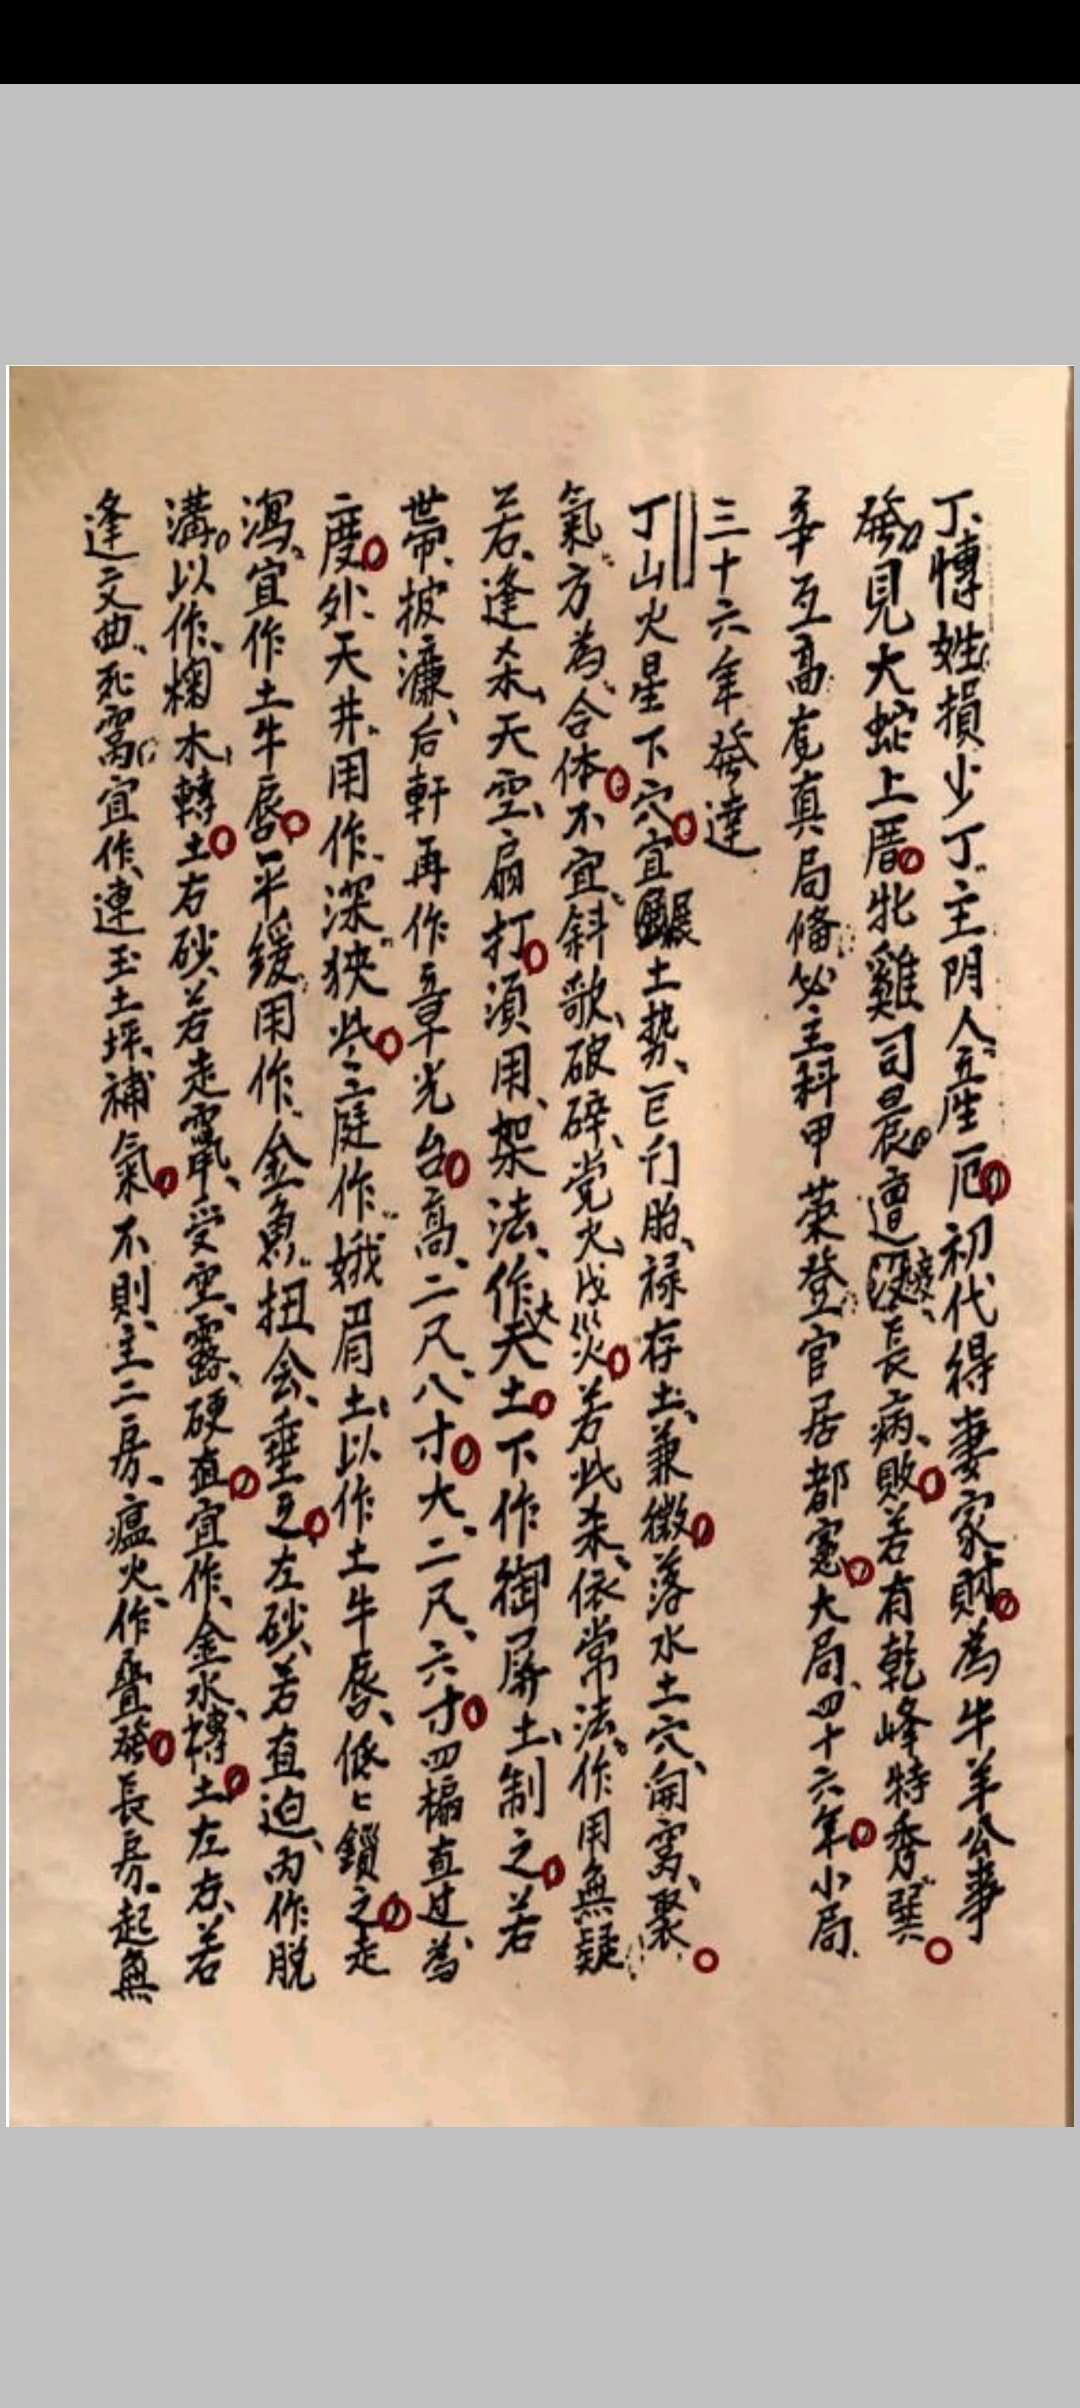 丁、愽姓損少丁、主阴人立產厄初代得妻家財為牛羊公事
發見大蛇上厝牝雞司晨遭長病、敗若有乾峰特秀巽
辛亙高有真局俻必主科甲荣登官居都憲大局四十六年小局
三十六年發達
丁山火星下穴宜土势、巨门胎、禄存土、兼微落水土穴、開窩、聚
氣方為合体不宜、斜欹、破碎、党火戊災若此杀、依常法作用無疑
若、逢杀、天空、扇打須用、架法、作夫土下作御屏土、制之若
帶、披濂、后軒再作章光台高、二尺八寸大、二尺、六寸四楄直过為
二度外天井、用作深狹些、二庭作娥眉土、以作土牛唇、低匕鎖之走
瀉、宜作土牛唇平緩用作金魚扭会、垂之左砂、若直迫丙作脱
溝以作、橺木轉土右砂、若走竄、受空、露硬直宜作、金水、摶土左右若
逢文曲、死窩宜作、連玉土坪、補氣不則、主二房、瘟火、作疊發長房、起無